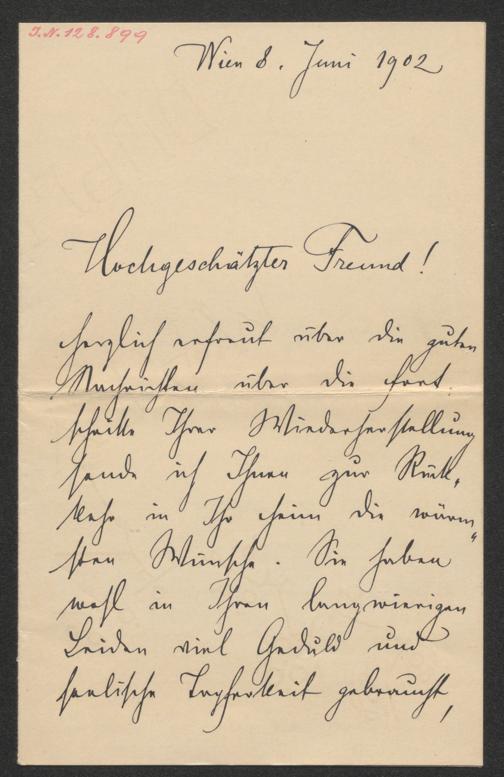 I.N. 128.899
Wien 8. Juni 1902
Hochgeschätzter Freund!
Herzlich erfreut über die guten
Nachrichten über die Fort-
schritte Ihrer Wiederherstellung
sende ich Ihnen zur Rück-
kehr in Ihr Heim die wärm-
sten Wünsche. Sie haben
wohl in Ihren langwierigen
Leiden viel Geduld und
seelische Tapferkeit gebraucht,